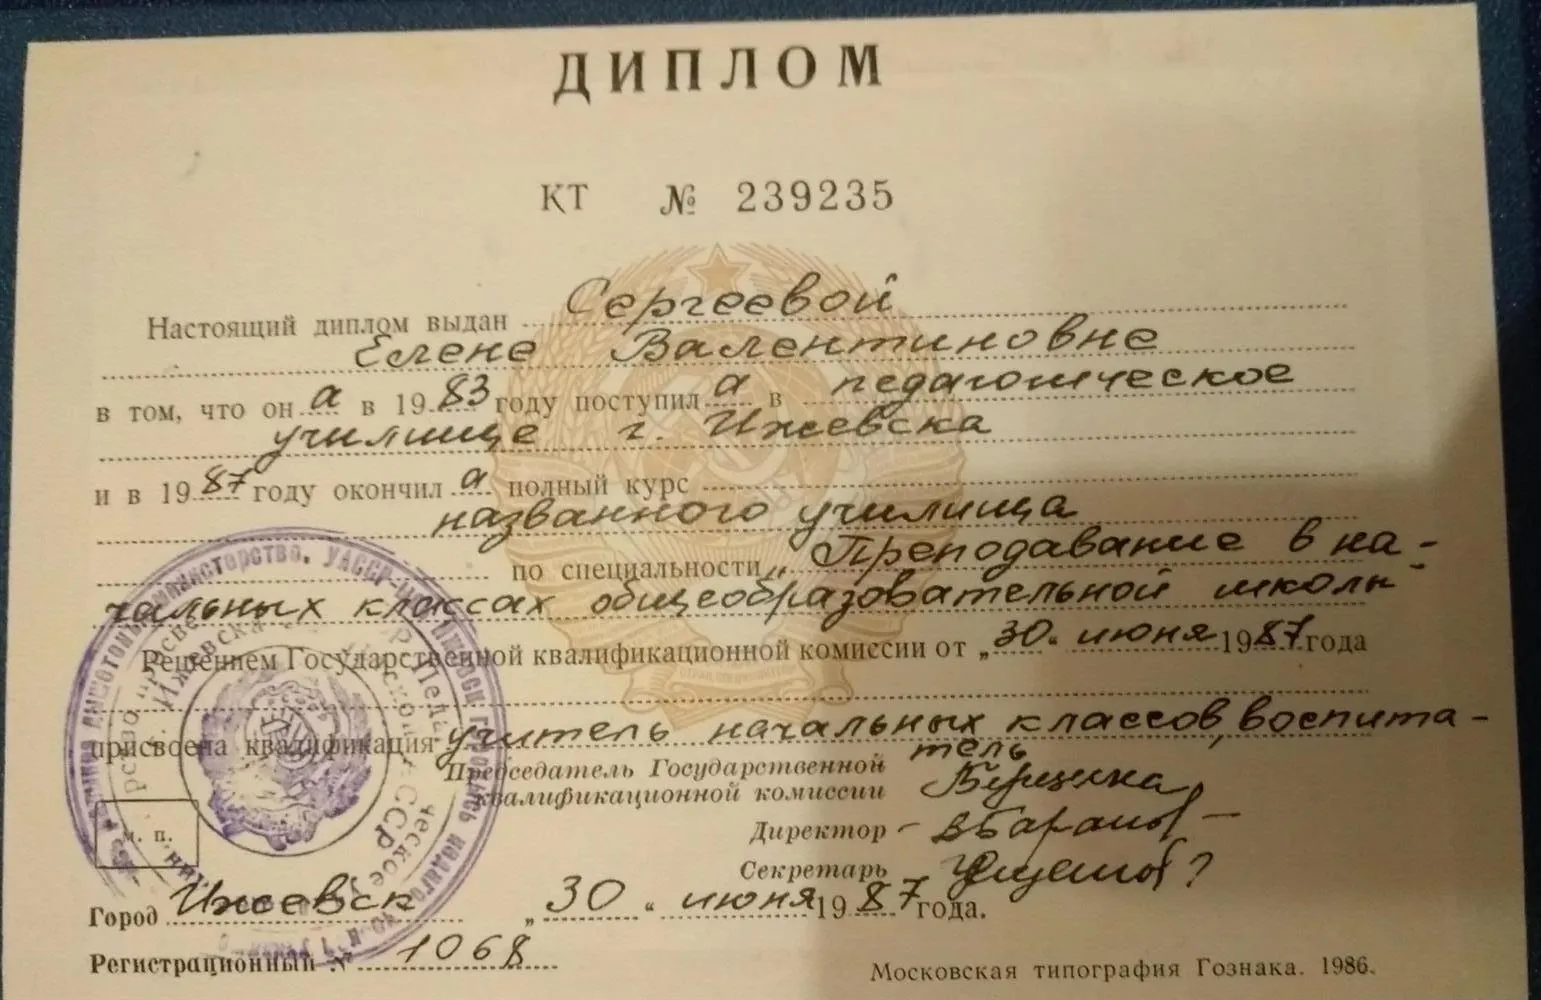 ДИПЛОМ
КТ № 239235
Настоящий диплом выдан Сергеевой
Елене Валентиновне
в том, что он а в 1983 году поступил а в педагогическое
училище г. Ижевска
и в 1987 году окончил а полный курс
названного училища
по специальности „Преподавание в на-
чальных классах общеобразовательной школы"
Решением Государственной квалификационной комиссии от „30" июня 1987 года
присвоена квалификация учитель начальных классов, воспита-
тель
Председатель Государственной
квалификационной комиссии
Директор
Секретарь
м. п.
Город Ижевск „30" июня 1987 года.
Регистрационный № 1068
Московская типография Гознака. 1986.